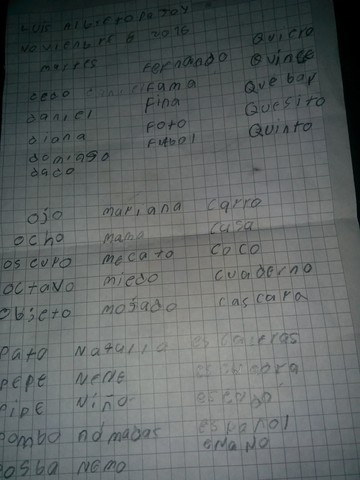 Luis Alberto
Noviembre 8 2016
martes
Fernando Quiero
dedo Fama Quince
daniel Fina Que bar
diana Foto Quesito
domingo Futbol Quinto
dado
ojo mariana carro
ocho mama casa
oscuro mecato coco
octavo miedo cuaderno
objeto mojado cascara
Pato Natalia escaleras
pepe Nene escalera
pipe Niño
Pombo español
Nemo enano